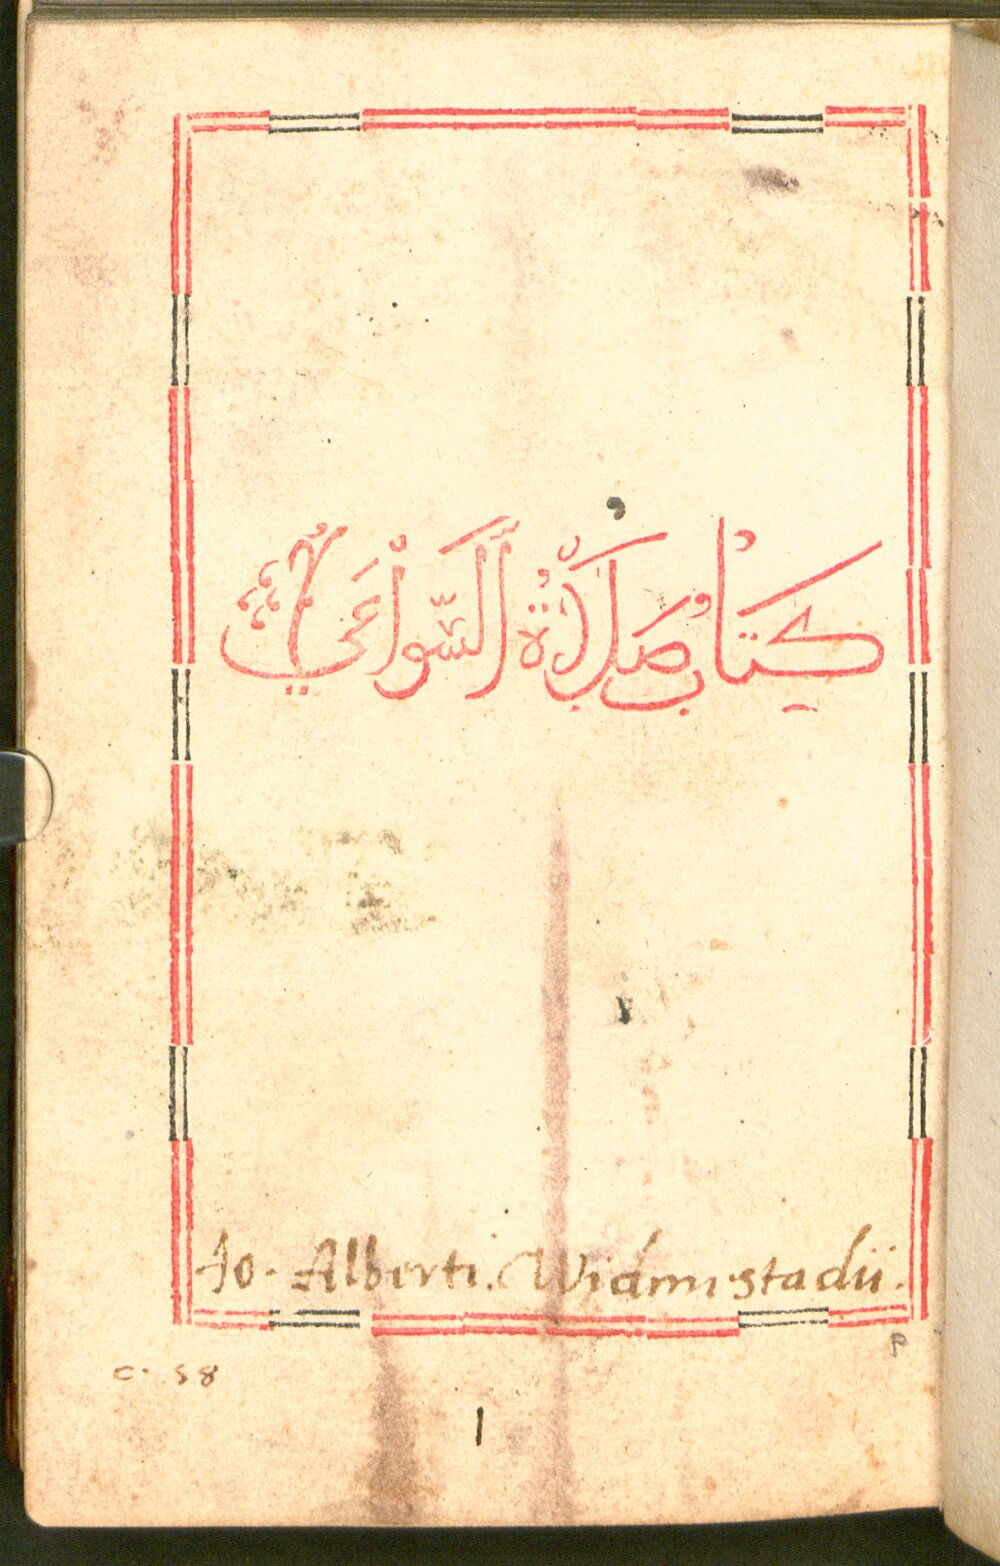 كِتَابُ صَلَاةُ اَلسَّوَاعِي
Jo. Alberti. Widmestadii.
c. 58
1